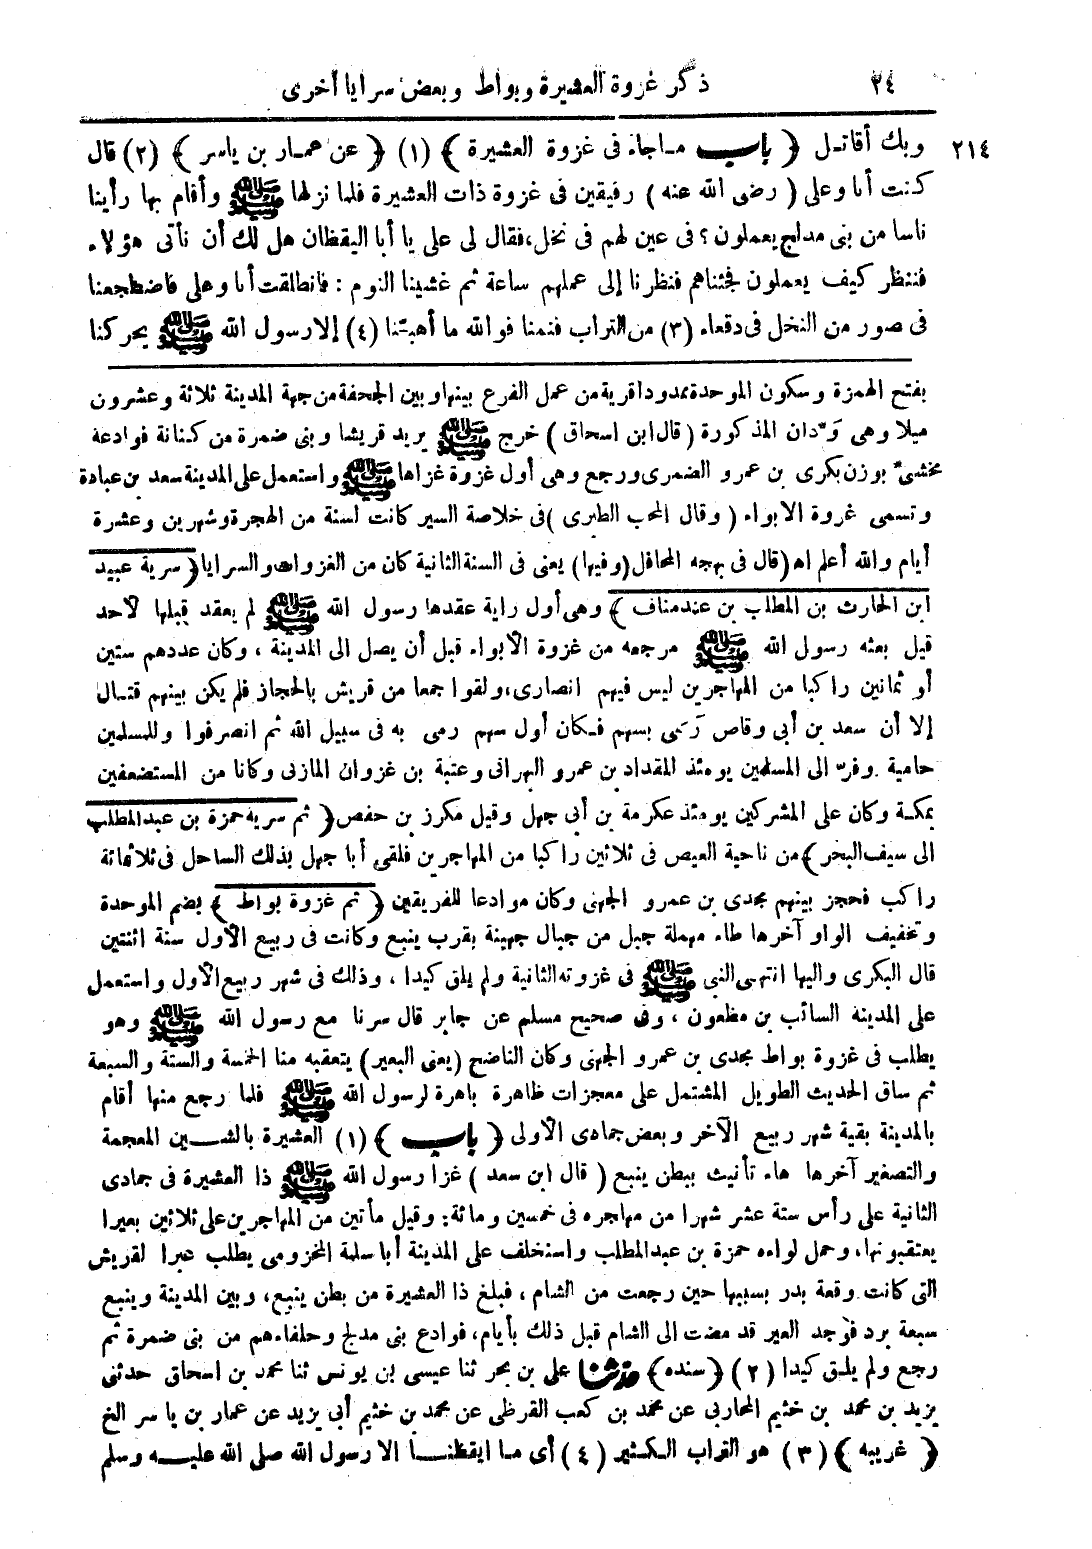 ٢٤ ذكر غزوة العشيرة وبواط وبعض سرايا أخرى
٢١٤ وبك أقاتل ﴿ باب ما جاء فى غزوة العشيرة ﴾ (١) ﴿ عن عمار بن ياسر ﴾ (٢) قال
كنت أنا وعلى ( رضى الله عنه ) رفيقين فى غزوة ذات العشيرة فلما نزلها ﷺ وأقام بها رأينا
ناسا من بنى مدلج يعملون؟ فى عين لهم فى نخل، فقال لى على يا أبا اليقظان هل لك أن نأتى هؤلاء
فننظر كيف يعملون فجئناهم فنظرنا إلى عملهم ساعة ثم غشينا النوم : فانطلقت أنا وعلى فاضطجعنا
فى صور من النخل فى دقعاء (٣) من التراب فنمنا فوالله ما أهبنا (٤) إلا رسول الله ﷺ يحركنا
بفتح الهمزة وسكون الموحدة ممدودا قرية من عمل الفرع بينها وبين الجحفة من جهة المدينة ثلاثة وعشرون
ميلا وهى ودّان المذكورة ( قال ابن اسحاق ) خرج ﷺ يريد قريشا وبنى ضمرة من كنانة فوادعه
مخشىّ بوزن بكرى بن عمرو الضمرى ورجع وهى أول غزوة غزاها ﷺ واستعمل على المدينة سعد بن عبادة
وتسمى غزوة الابواء ( وقال المحب الطبرى ) فى خلاصة السير كانت لسنة من الهجرة وشهرين وعشرة
أيام والله أعلم اه (قال فى بهجه المحافل (وفيها) يعنى فى السنة الثانية كان من الغزوات والسرايا ﴿ سرية عبيد
ابن الحارث بن المطلب بن عندمناف ﴾ وهى أول راية عقدها رسول الله ﷺ لم يعقد قبلها لأحد
قيل بعثه رسول الله ﷺ مرجعه من غزوة الأبواء قبل أن يصل الى المدينة ، وكان عددهم ستين
أو ثمانين راكبا من المهاجرين ليس فيهم انصارى، ولقوا جمعا من قريش بالحجاز فلم يكن بينهم قتال
إلا أن سعد بن أبى وقاص رَمى بسهم فكان أول سهم رمى به فى سبيل الله ثم انصرفوا وللمسلمين
حامية وفرّ الى المسلمين يومئذ المقداد بن عمرو البهرانى وعتبة بن غزوان المازنى وكانا من المستضعفين
بمكة وكان على المشركين يومئذ عكرمة بن أبى جهل وقيل مكرز بن حفص ﴿ ثم سرية حمزة بن عبدالمطلب
الى سيف البحر ﴾ من ناحية العيص فى ثلاثين راكبا من المهاجرين فلقى أبا جهل بذلك الساحل فى ثلاثمائة
راكب فحجز بينهم مجدى بن عمرو الجهنى وكان موادعا للفريقين ﴿ ثم غزوة بواط ﴾ بضم الموحدة
وتخفيف الواو آخرها طاء مهملة جبل من جبال جهينة بقرب ينبع وكانت فى ربيع الأول سنة اثنتين
قال البكرى واليها انتهى النبى ﷺ فى غزوته الثانية ولم يلق كيدا ، وذلك فى شهر ربيع الأول واستعمل
على المدينة السائب بن مظعون ، وفى صحيح مسلم عن جابر قال سرنا مع رسول الله ﷺ وهو
يطلب فى غزوة بواط مجدى بن عمرو الجهنى وكان الناضح (يعنى البعير) يتعقبه منا الخمسة والستة والسبعة
ثم ساق الحديث الطويل المشتمل على معجزات ظاهرة باهرة لرسول الله ﷺ فلما رجع منها أقام
بالمدينة بقية شهر ربيع الآخر وبعض جمادى الأولى ﴿ باب ﴾ (١) العشيرة بالشين المعجمة
والتصغير آخرها هاء تأنيث ببطن ينبع ( قال ابن سعد ) غزا رسول الله ﷺ ذا العشيرة فى جمادى
الثانية على رأس ستة عشر شهرا من مهاجره فى خمسين ومائة: وقيل مأتين من المهاجرين على ثلاثين بعيرا
يعتقبونها، وحمل لواءه حمزة بن عبدالمطلب واستخلف على المدينة أبا سلمة المخزومى يطلب عيرا لقريش
التى كانت وقعة بدر بسببها حين رجعت من الشام ، فبلغ ذا العشيرة من بطن ينبع، وبين المدينة وينبع
سبعة برد فوجد العير قد مضت الى الشام قبل ذلك بأيام، فوادع بنى مدلج وحلفاءهم من بنى ضمرة ثم
رجع ولم يلق كيدا (٢) ﴿ سنده ﴾ حدثنا على بن بحر ثنا عيسى بن يونس ثنا محمد بن اسحاق حدثنى
يزيد بن محمد بن خثيم المحاربى عن محمد بن كعب القرظى عن محمد بن خثيم أبى يزيد عن عمار بن ياسر الخ
﴿ غريبه ﴾ (٣) هو التراب الكثير (٤) أى ما ايقظنا الا رسول الله صلى الله عليه وسلم